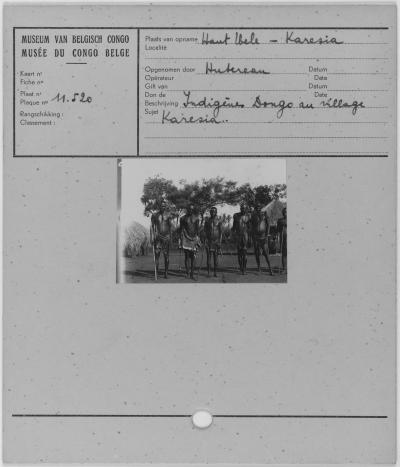 MUSEUM VAN BELGISCH CONGO
MUSÉE DU CONGO BELGE
Kaart nr
Fiche no
Plaat nr
Plaque no 11.520
Rangschikking :
Classement :
Plaats van opname Haut Uele - Karesia
Localité
Opgenomen door Hutereau Datum
Opérateur Date
Gift van Datum
Don de Date
Beschrijving Indigènes Dongo au village
Sujet Karesia..